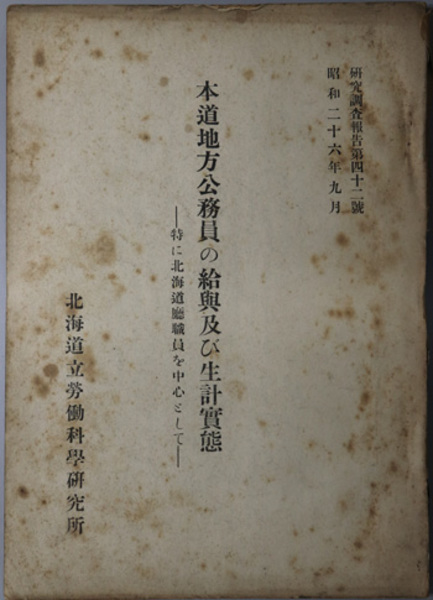 研究調査報告第四十二號
昭和二十六年九月
本道地方公務員の給與及び生計實態
―特に北海道廳職員を中心として―
北海道立勞働科學硏究所